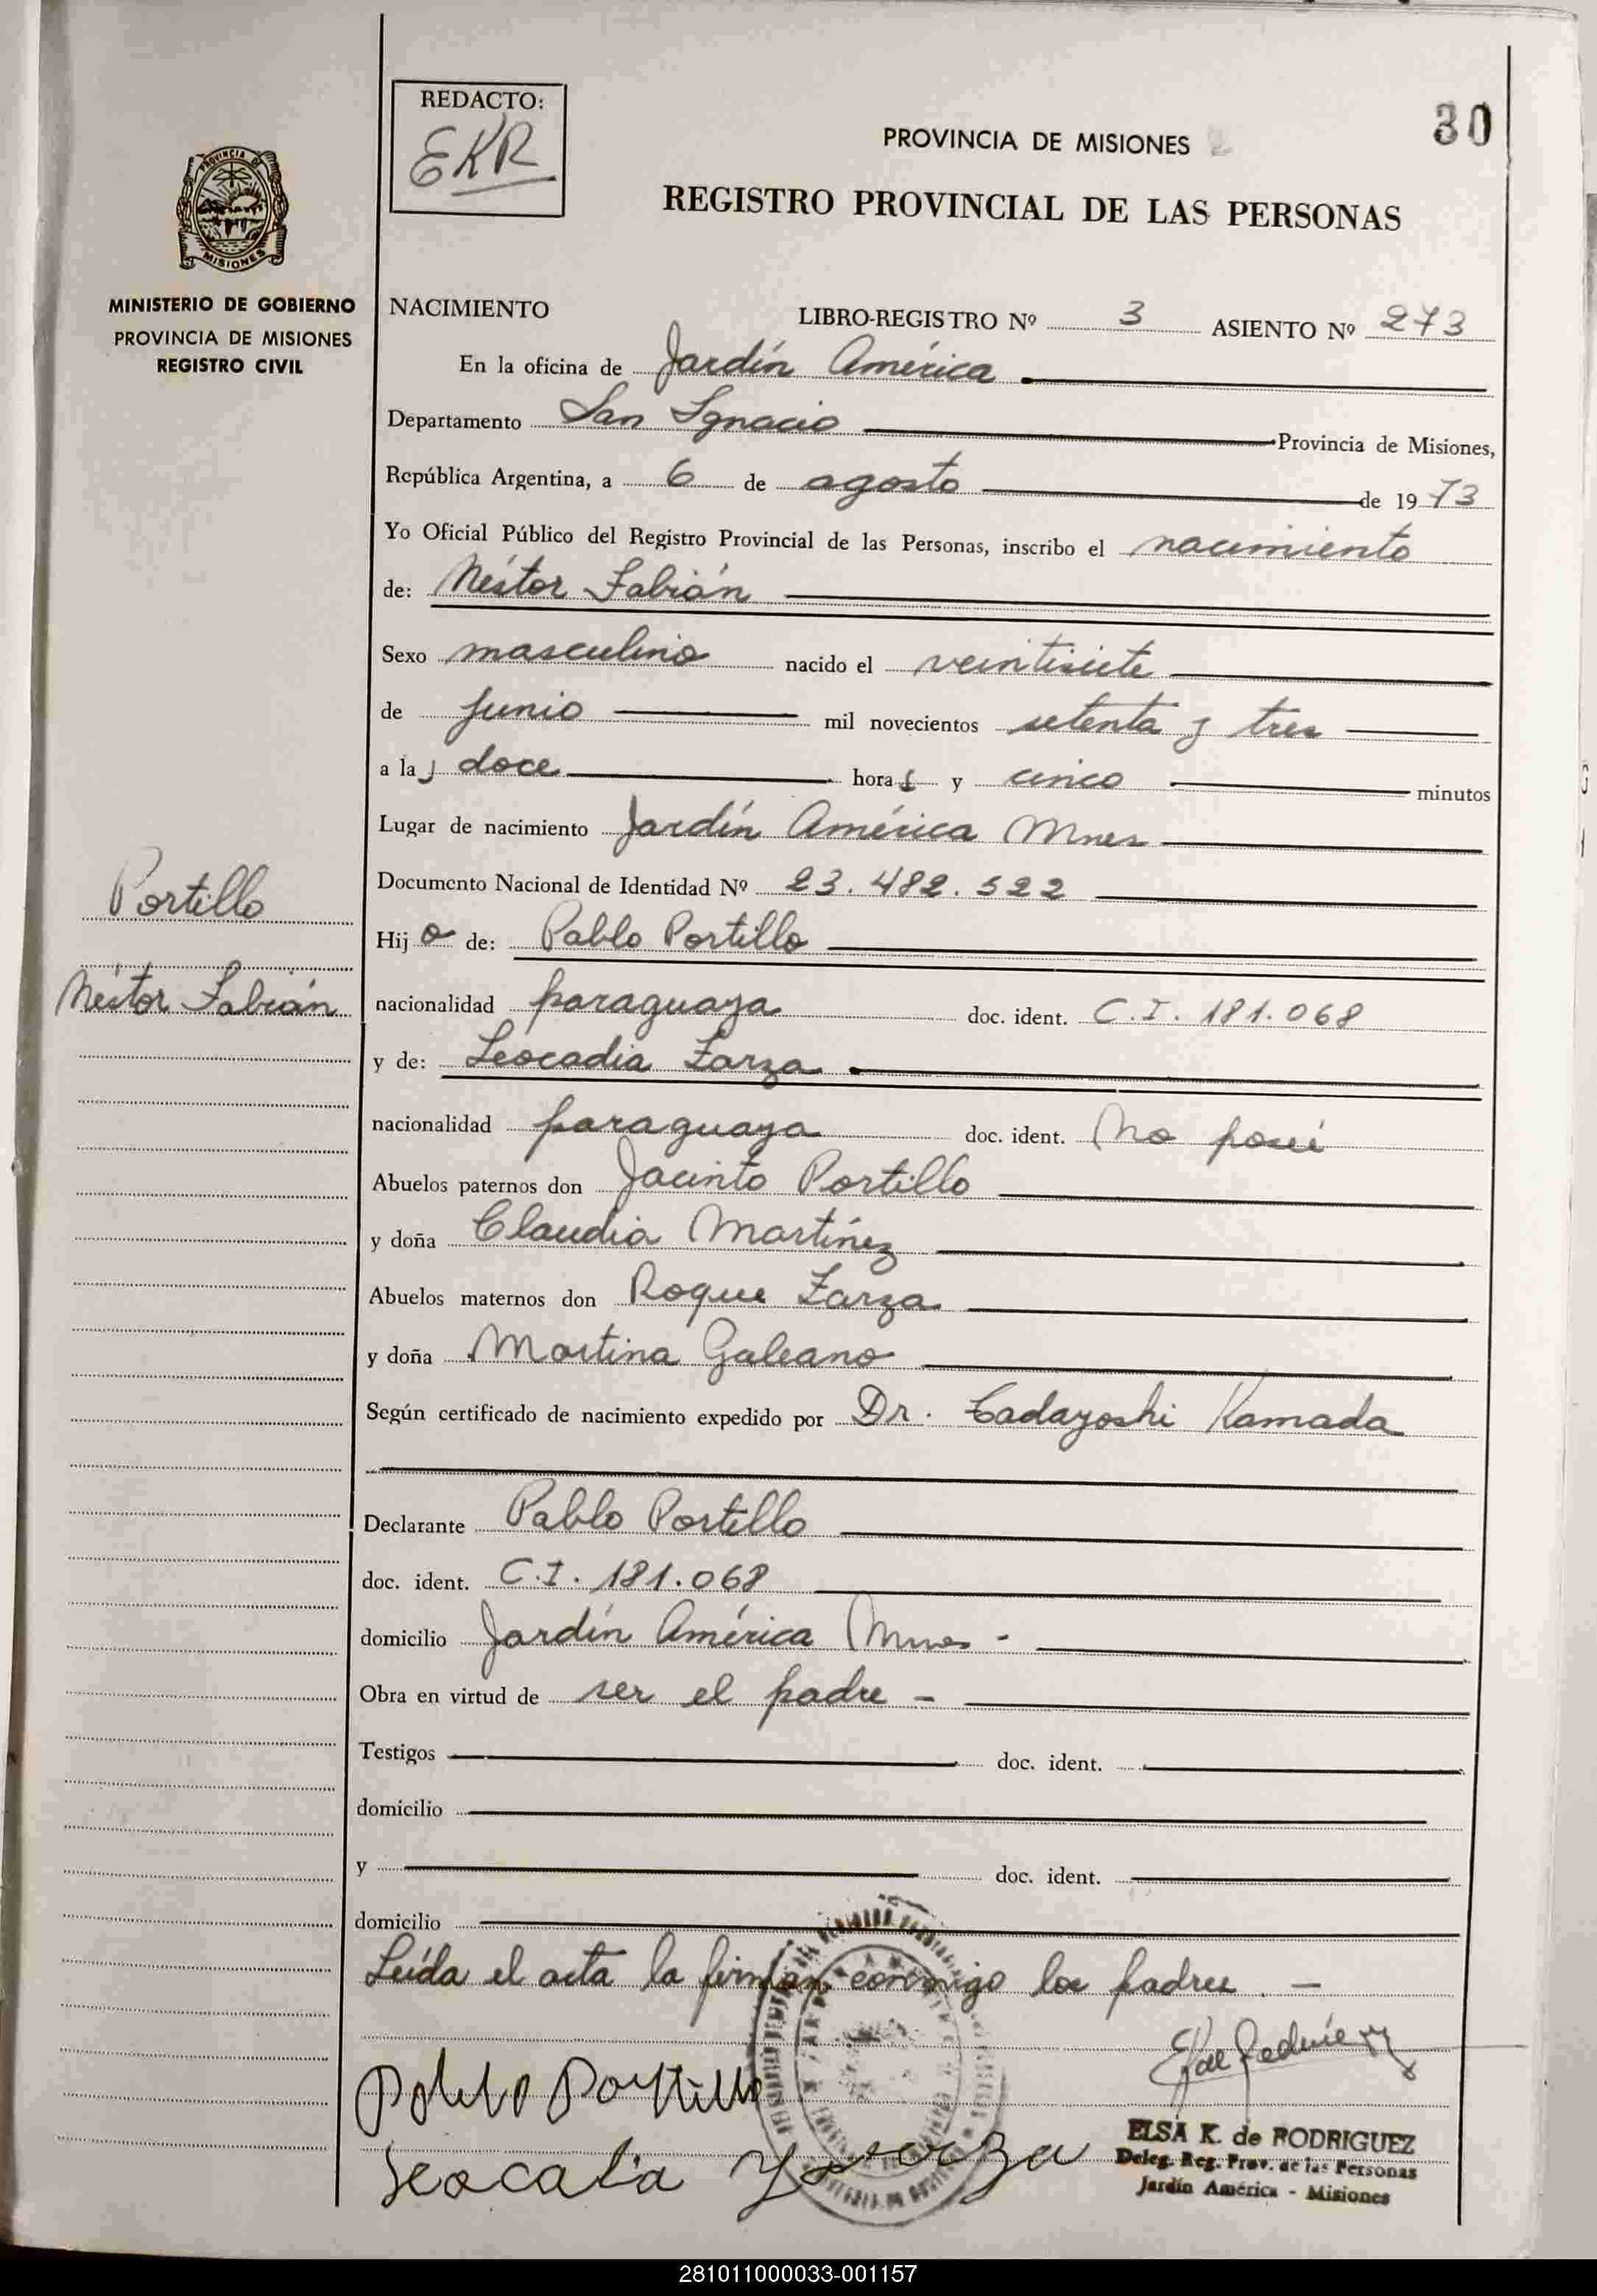 REDACTO:
EKR
30
PROVINCIA DE MISIONES
REGISTRO PROVINCIAL DE LAS PERSONAS
PROVINCIA DE
MISIONES
MINISTERIO DE GOBIERNO
PROVINCIA DE MISIONES
REGISTRO CIVIL
NACIMIENTO LIBRO-REGISTRO Nº 3 ASIENTO Nº 273
En la oficina de Jardín América
Departamento San Ignacio Provincia de Misiones,
República Argentina, a 6 de agosto de 1973
Yo Oficial Público del Registro Provincial de las Personas, inscribo el nacimiento
de: Néstor Fabián
Sexo masculino nacido el veintisiete
de junio mil novecientos setenta y tres
a las doce horas y cinco minutos
Lugar de nacimiento Jardín América Mnes
Documento Nacional de Identidad Nº 23.482.522
Portillo
Hijo de: Pablo Portillo
Néstor Fabián
nacionalidad paraguaya doc. ident. C.I. 181.068
y de: Leocadia Zarza
nacionalidad paraguaya doc. ident. No posée
Abuelos paternos don Jacinto Portillo
y doña Claudia Martínez
Abuelos maternos don Roque Zarza
y doña Martina Galeano
Según certificado de nacimiento expedido por Dr. Tadayoshi Kamada
Declarante Pablo Portillo
doc. ident. C.I. 181.068
domicilio Jardín América Mnes -
Obra en virtud de ser el padre -
Testigos doc. ident.
domicilio
y doc. ident.
domicilio
Leída el acta la firman conmigo los padres. -
Pablo Portillo
Leocadia Zarza
ELSA K. de RODRIGUEZ
Deleg. Reg. Prov. de las Personas
Jardín América - Misiones
281011000033-001157